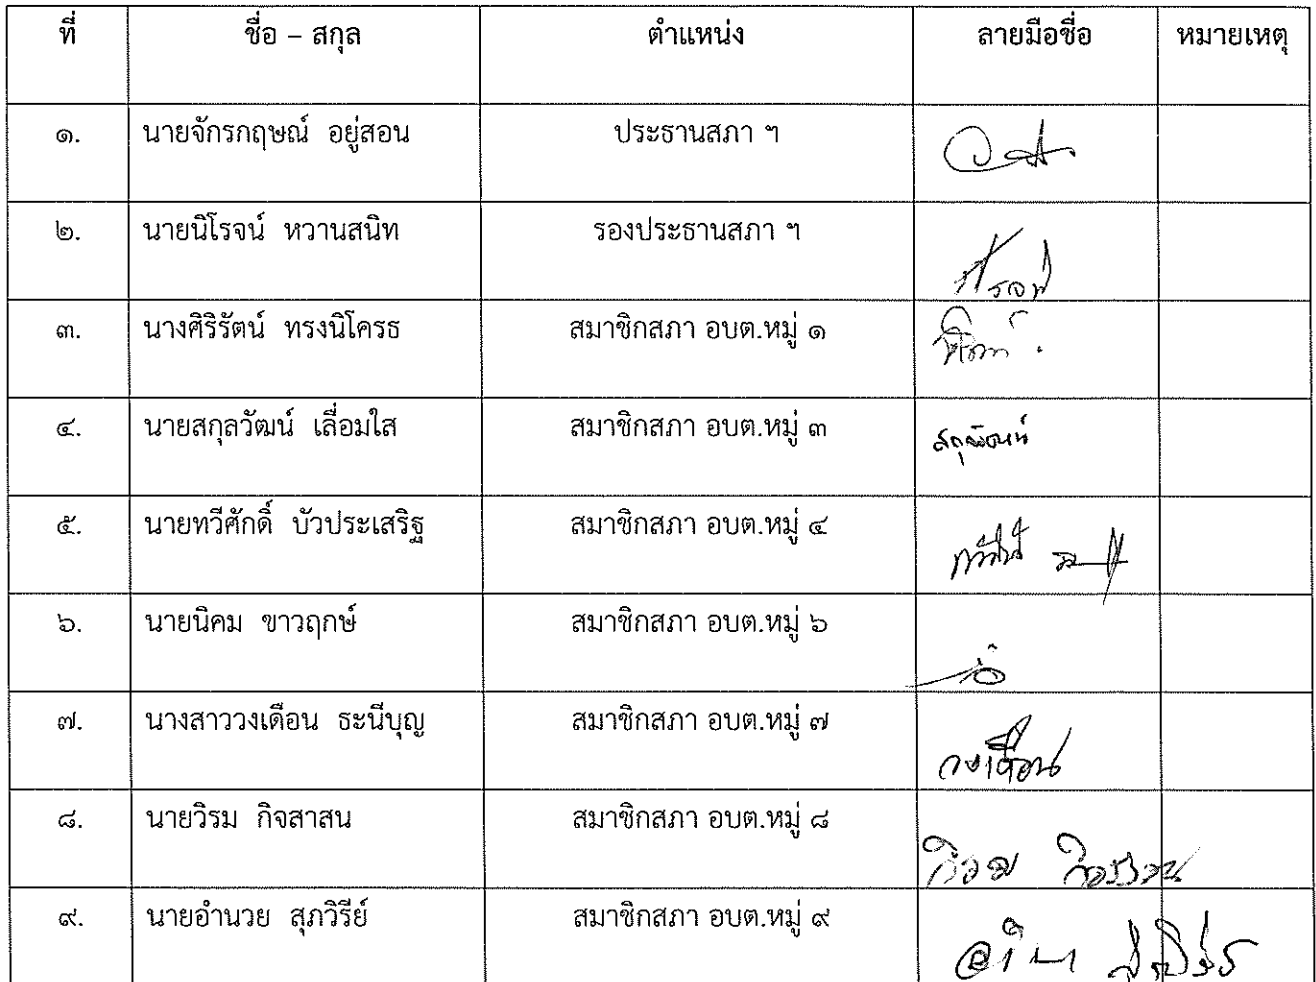 ที่ ชื่อ – สกุล ตำแหน่ง ลายมือชื่อ หมายเหตุ
๑. นายจักรกฤษณ์ อยู่สอน ประธานสภา ฯ
๒. นายนิโรจน์ หวานสนิท รองประธานสภา ฯ
๓. นางศิริรัตน์ ทรงนิโครธ สมาชิกสภา อบต.หมู่ ๑
๔. นายสกุลวัฒน์ เลื่อมใส สมาชิกสภา อบต.หมู่ ๓ สกุลวัฒน์
๕. นายทวีศักดิ์ บัวประเสริฐ สมาชิกสภา อบต.หมู่ ๔
๖. นายนิคม ขาวฤกษ์ สมาชิกสภา อบต.หมู่ ๖
๗. นางสาววงเดือน ธะนีบุญ สมาชิกสภา อบต.หมู่ ๗ วงเดือน
๘. นายวิรม กิจสาสน สมาชิกสภา อบต.หมู่ ๘
๙. นายอำนวย สุภวิรีย์ สมาชิกสภา อบต.หมู่ ๙